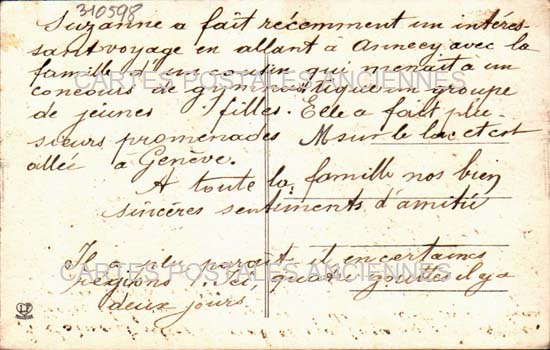 310598
Suzanne a fait récemment un intéres-
sant voyage en allant à Annecy avec la
famille d'un cousin qui menait à un
concours de gymnastique un groupe
de jeunes filles. Elle a fait plu-
sieurs promenades M sur le lac et est
allée à Genève.
A toute la famille nos bien
sincères sentiments d'amitié
Il a plu parait-il en certaines
régions ! Ici, quatre gouttes il y a
deux jours
CARTES POSTALES ANCIENNES
CARTES POSTALES ANCIENNES